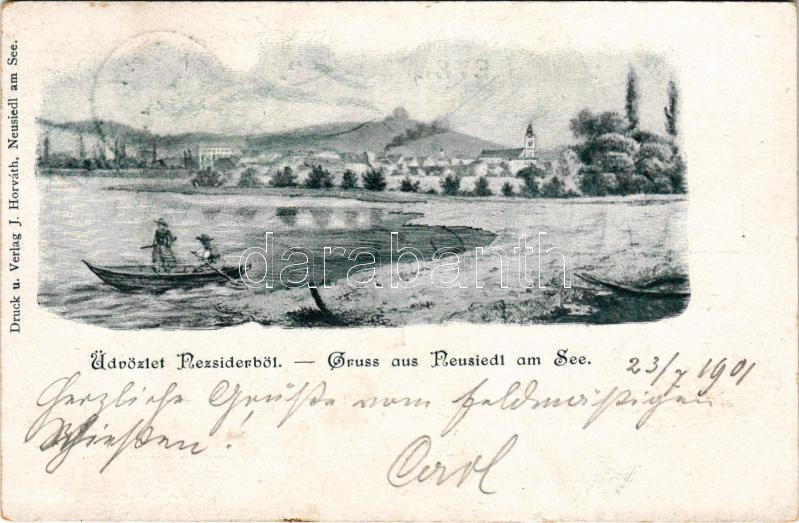 Druck u. Verlag J. Horváth, Neusiedl am See.
darabanth
Üdvözlet Nezsiderböl. — Gruss aus Neusiedl am See.
23/7 1901
Herzliche Grüße vom feldmäßigen
Schießen!
Carl